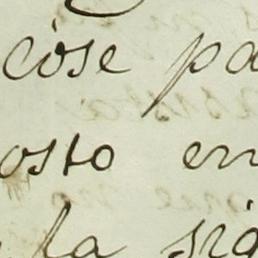 cose pa
osto en
la sig